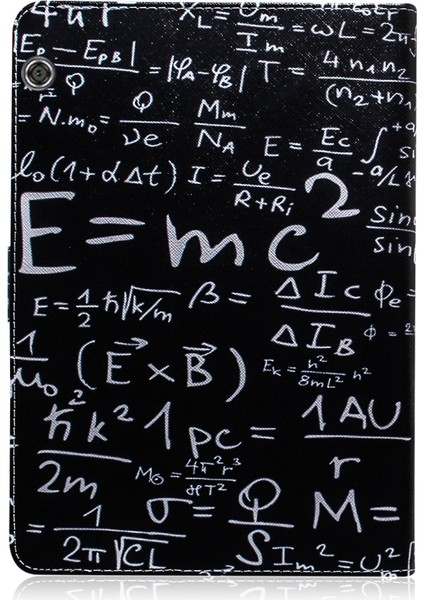 4πr X_L = U_m / I_m = ωL = 2π
|E_PA − E_PB| / Q = |φ_A − φ_B| T = 4 n₁ n₂ / (n₂ + n₁
= N.m₀ = Q / νe M_m / N_A E = E_c / a ∫
l₀(1 + α Δt) I = U_e / R + R_i
E = mc²
Sin / Sin
E = 1/2 ħ√k/m β = ΔI_C / ΔI_B Φ_e =
1/μ₀ (E⃗ × B⃗) E_k = h² / 8mL² n² Φ =
ħ² k² / 2m 1 pc = 1 AU / r
M_⊙ = 4π² r³ / ϰT²
σ = Q / S M =
= 1 / 2π √CL I_m² = U_m²